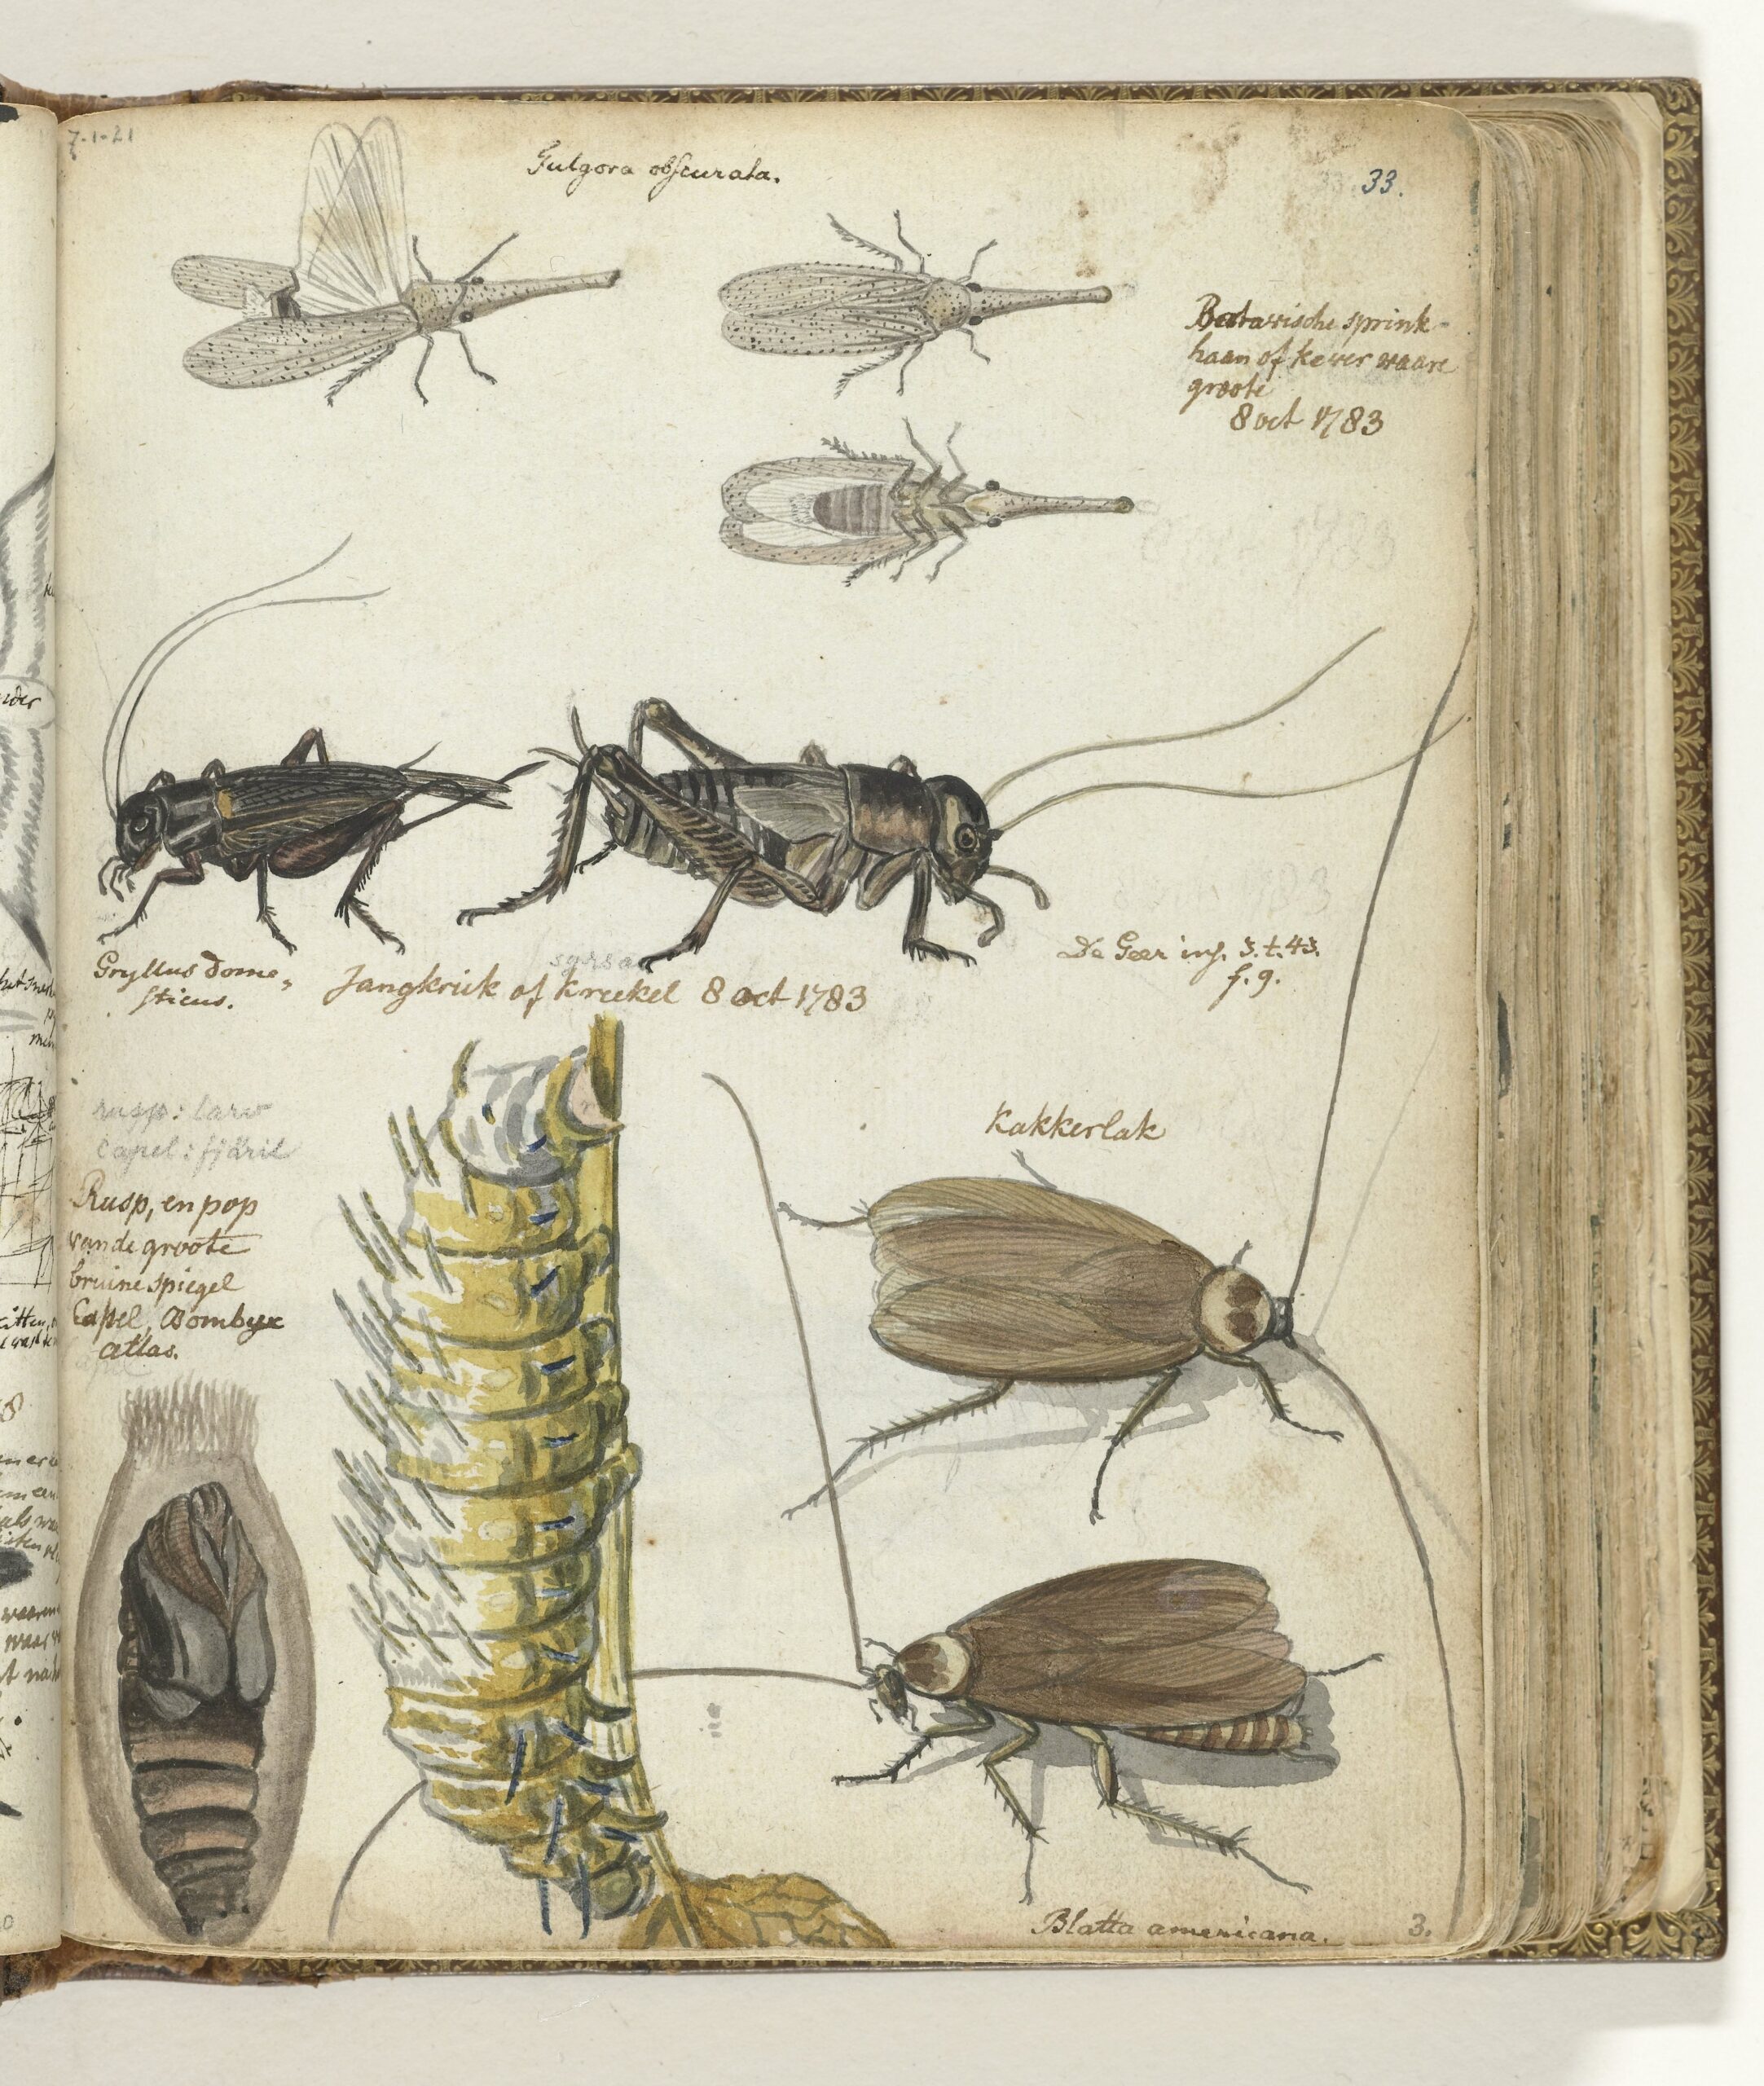 7-1-21
Fulgora obscurata.
33.
Batavische sprink-
haan of kever waare
groote
8 oct 1783
Gryllus dome,
sticus.
Jangkrik of kreekel 8 oct 1783
De Geer ins. 3. t. 43.
f. 9.
rusp: larv
capel: fjäril
Rusp, en pop
vande groote
bruine spiegel
Capel, Bombyx
atlas.
Kakkerlak
Blatta americana.
3.